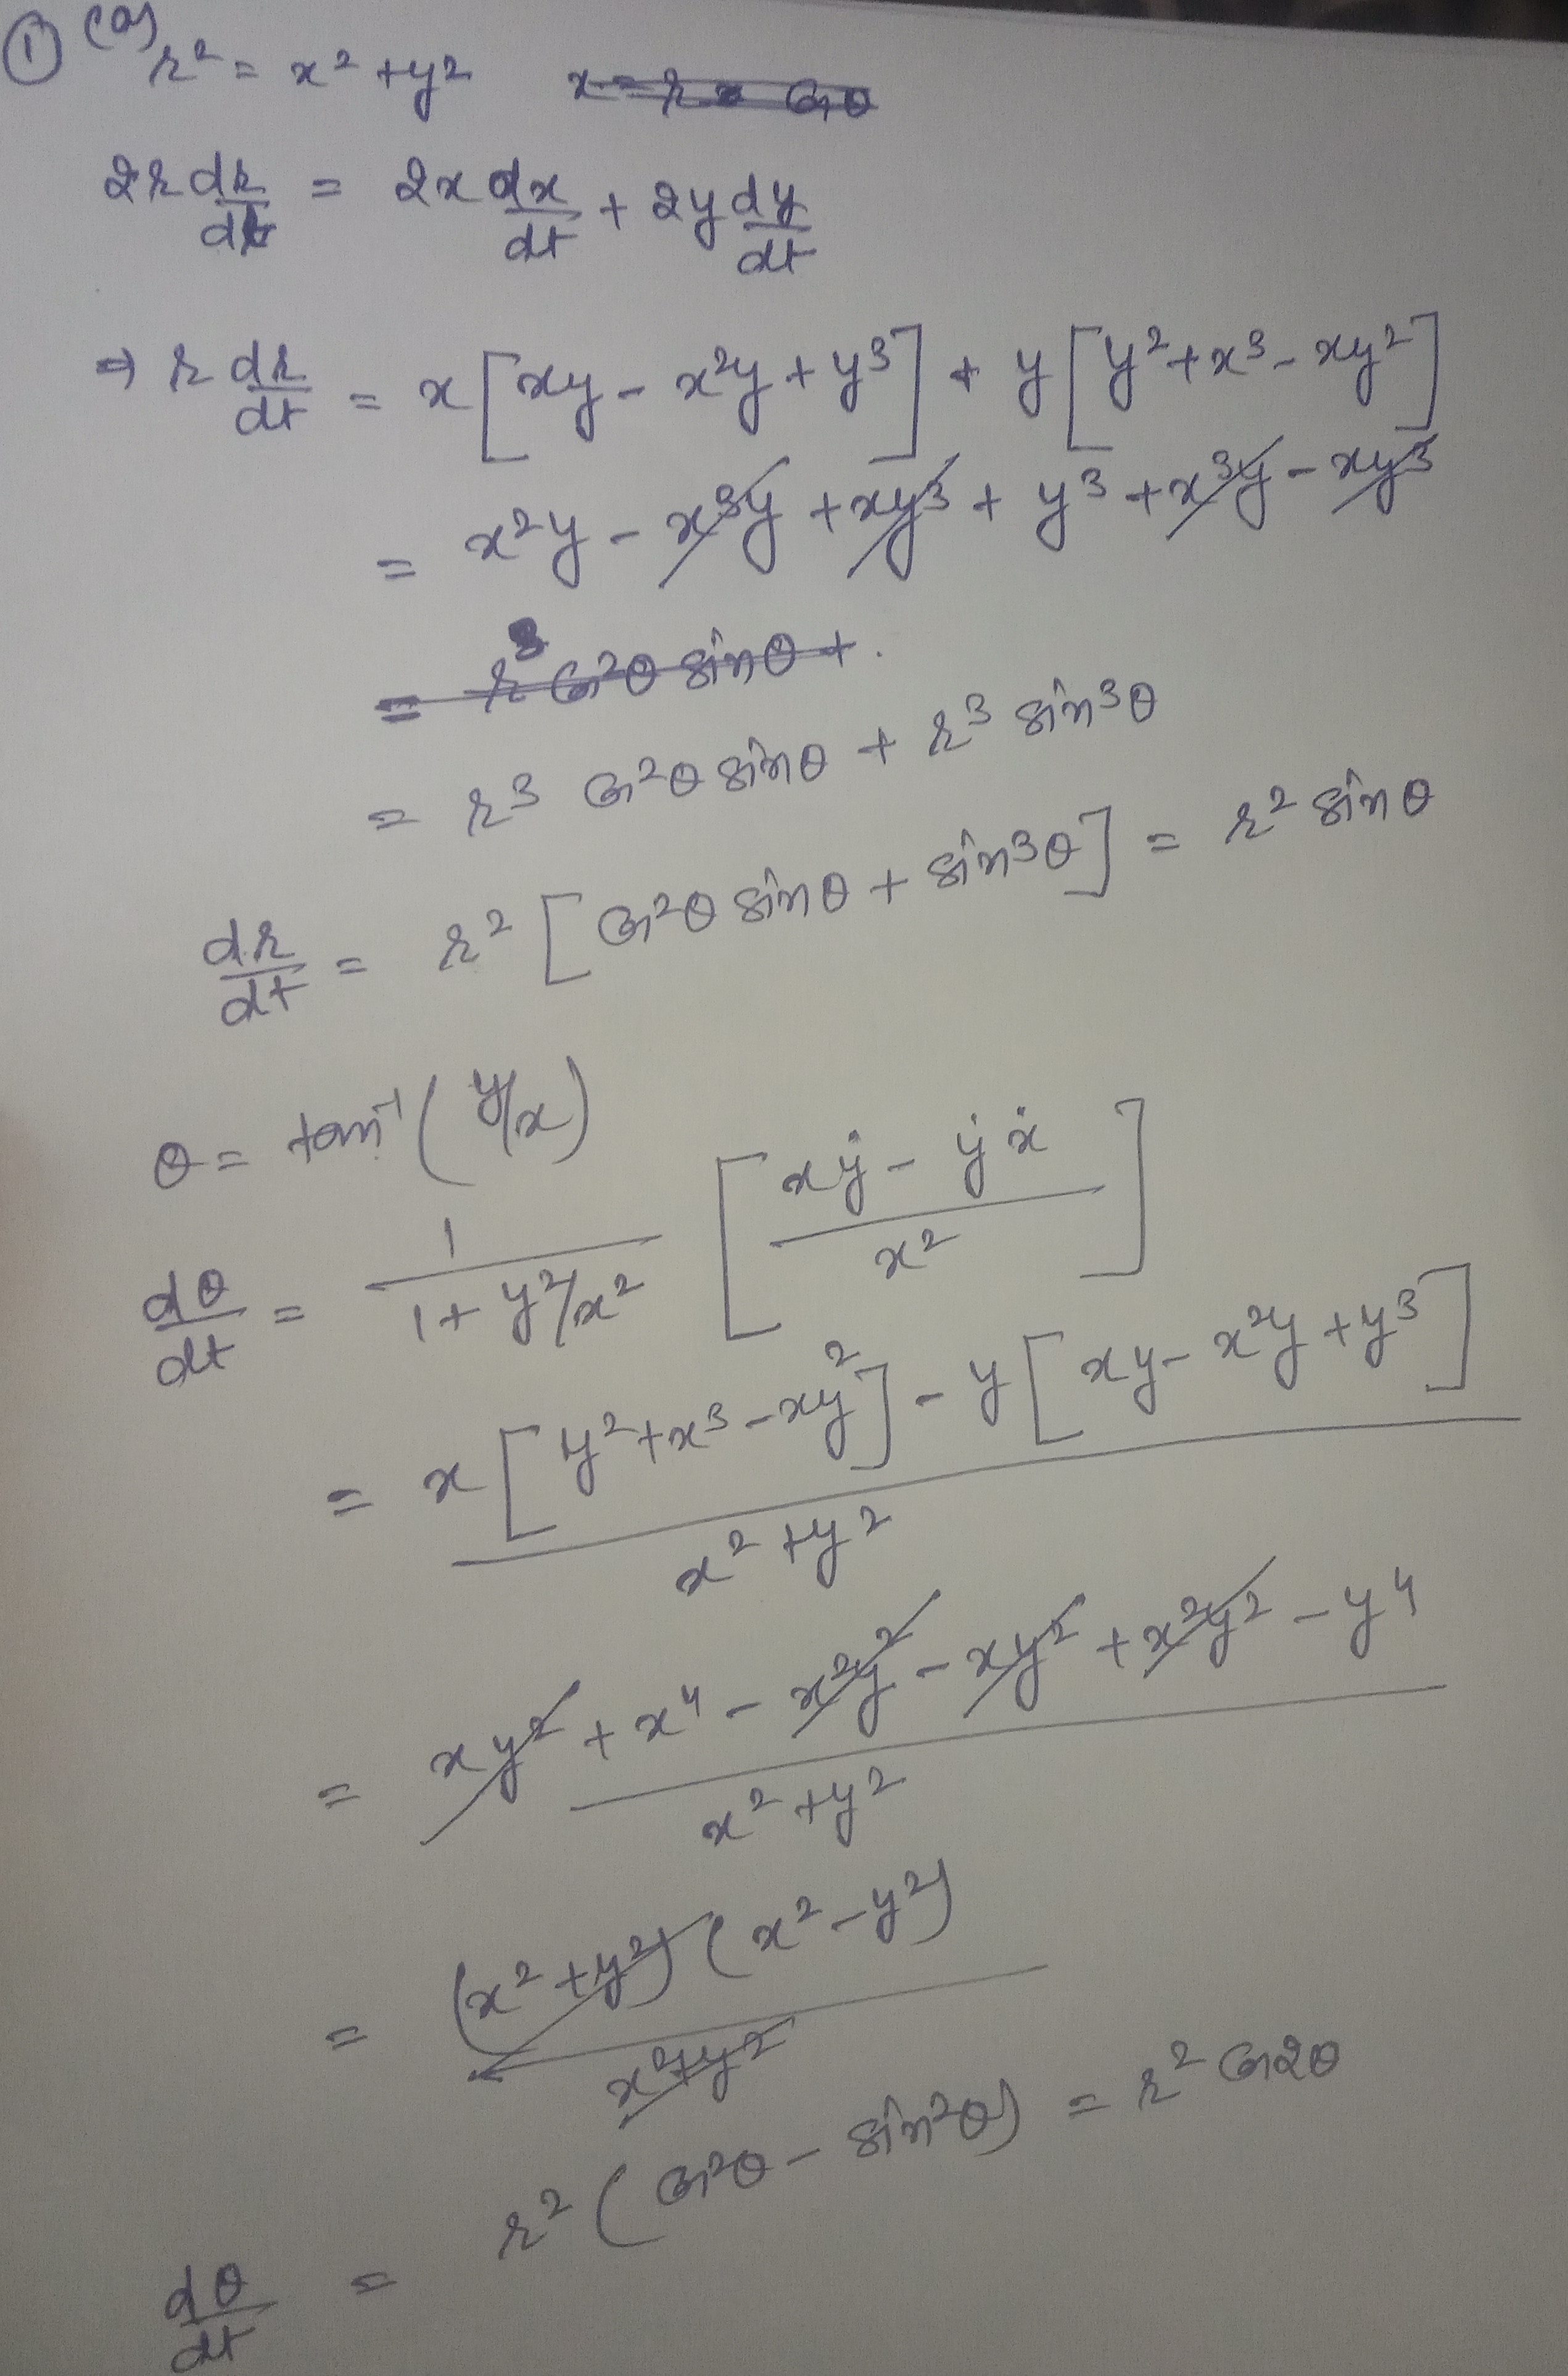 ① (a) r² = x² + y² x = r cosθ
2r dr/dt = 2x dx/dt + 2y dy/dt
⇒ r dr/dt = x[xy - x²y + y³] + y[y² + x³ - xy²]
= x²y - x³y + xy³ + y³ + x³y - xy³
= r³ cos²θ sinθ + .
= r³ cos²θ sinθ + r³ sin³θ
dr/dt = r² [cos²θ sinθ + sin³θ] = r² sinθ
θ = tan⁻¹(y/x)
dθ/dt = 1/(1 + y²/x²) [(xẏ - ẏẋ)/x²]
= (x[y² + x³ - xy²] - y[xy - x²y + y³])/(x² + y²)
= (xy² + x⁴ - x²y² - xy² + x²y² - y⁴)/(x² + y²)
= (x² + y²)(x² - y²)/(x² + y²)
dθ/dt = r² (cos²θ - sin²θ) = r² cos2θ